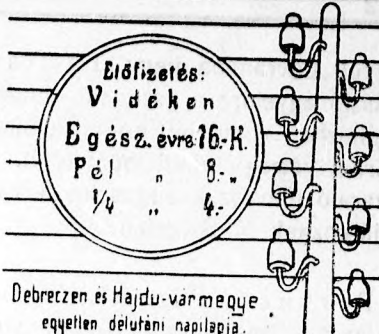 Előfizetés:
Vidéken
Egész. évre 16.-K.
Fél „ 8.-„
1/4 „ 4.-
Debreczen és Hajdu-varmegye
egyetlen délutáni napilapja.